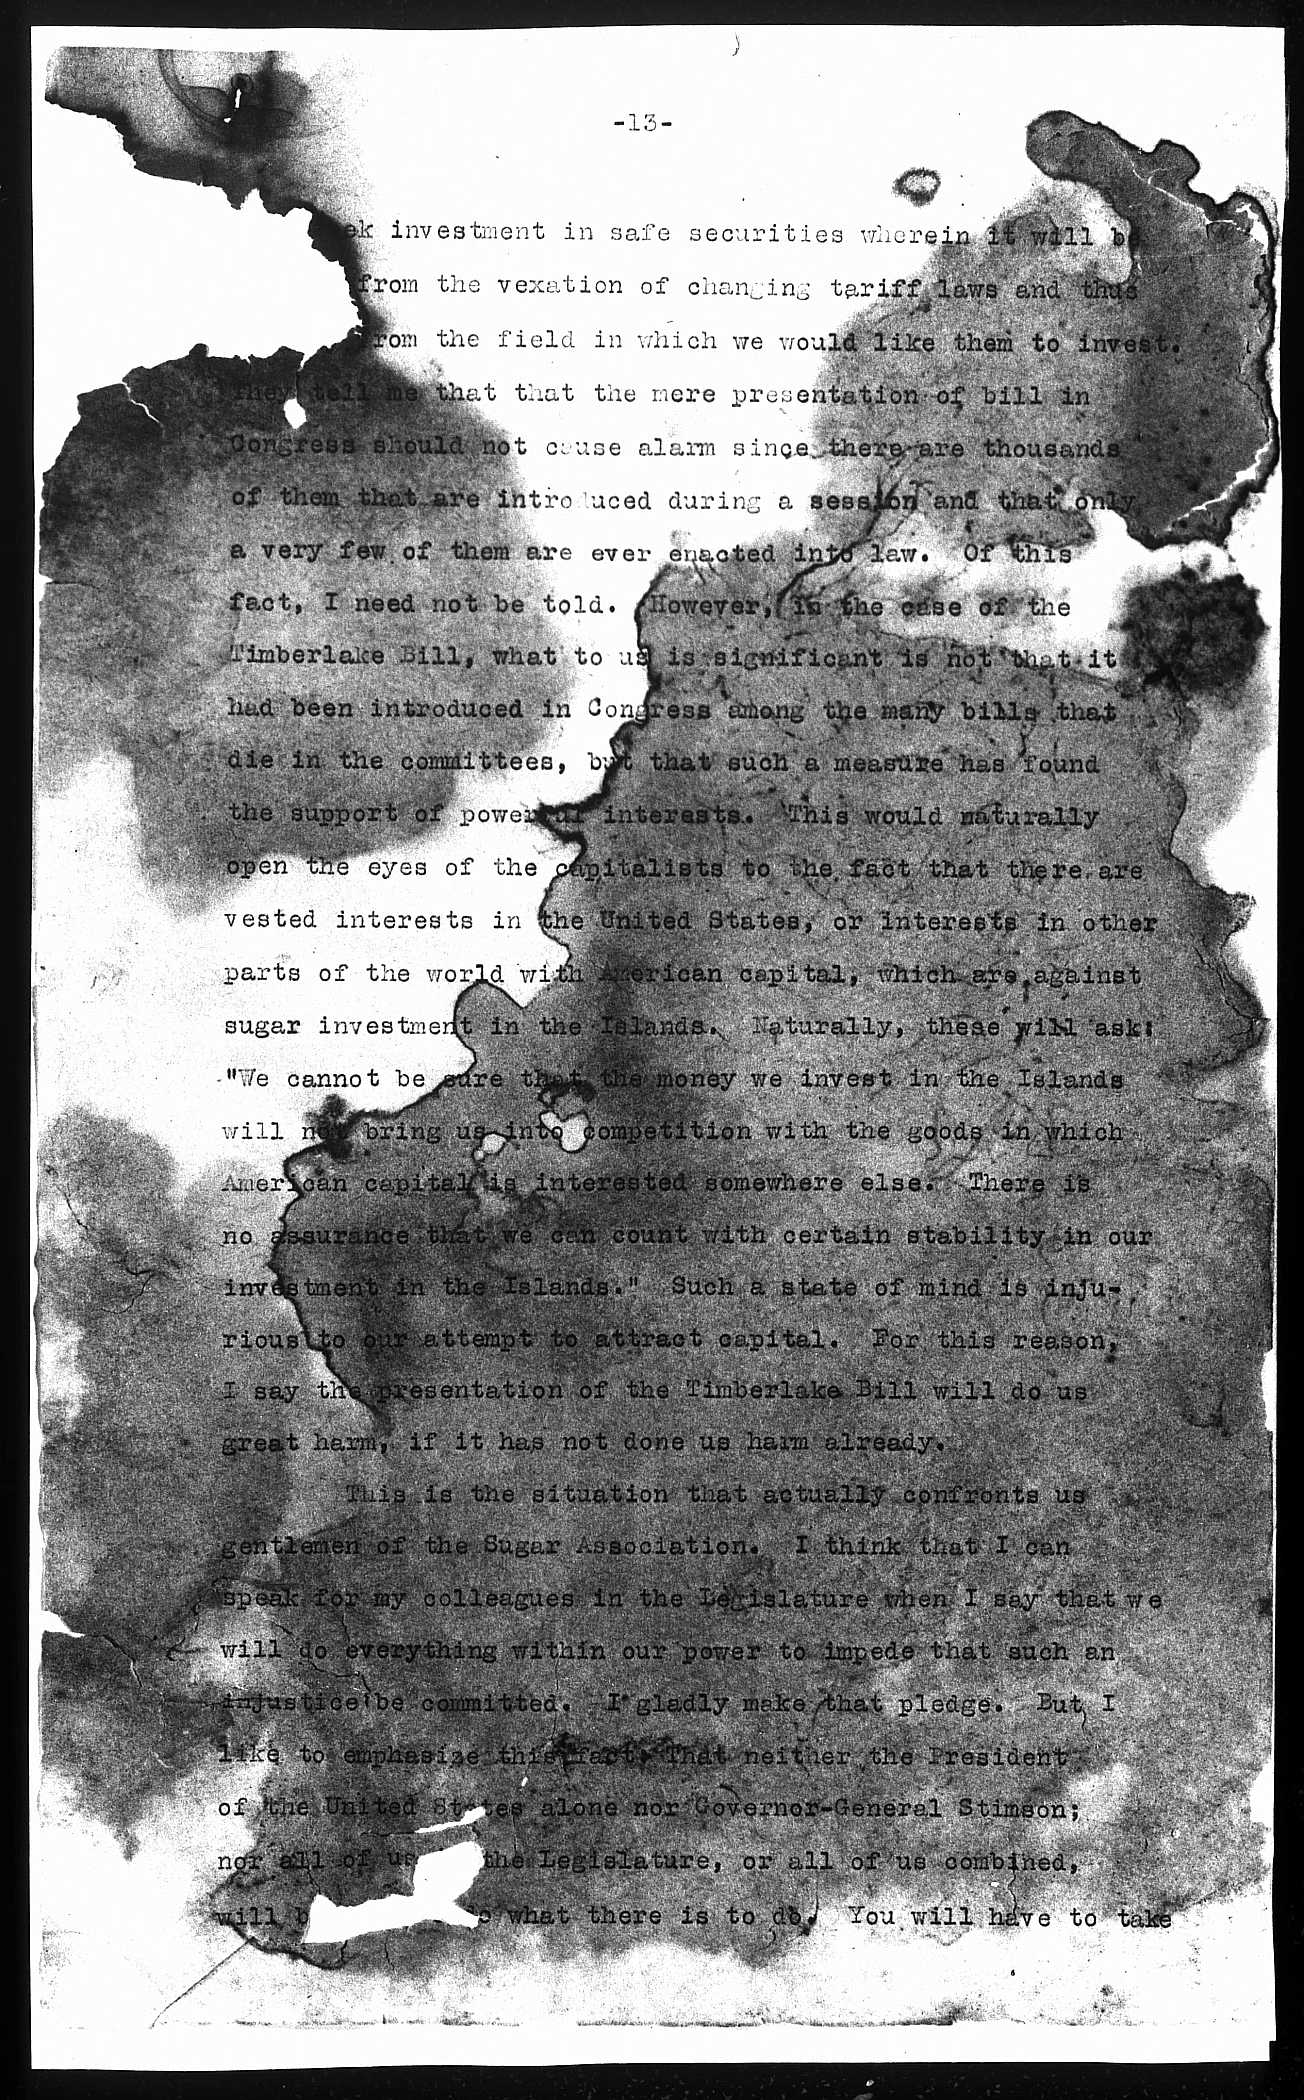 -13-
investment in safe securities wherein it will be
from the vexation of changing tariff laws and thus
the field in which we would like them to invest.
They tell me that that the mere presentation of bill in
Congress should not cause alarm since there are thousands
of them that are introduced during a session and that only
a very few of them are ever enacted into law. Of this
fact, I need not be told. However, in the case of the
Timberlake Bill, what to us is significant is not that it
had been introduced in Congress among the many bills that
die in the committees, but that such a measure has found
the support of powerful interests. This would naturally
open the eyes of the capitalists to the fact that there are
vested interests in the United States, or interests in other
parts of the world with American capital, which are against
sugar investment in the Islands. Naturally, these will ask:
"We cannot be sure that the money we invest in the Islands
will not bring us into competition with the goods in which
American capital is interested somewhere else. There is
no assurance that we can count with certain stability in our
investment in the Islands." Such a state of mind is inju-
rious to our attempt to attract capital. For this reason,
I say the presentation of the Timberlake Bill will do us
great harm, if it has not done us harm already.
This is the situation that actually confronts us
gentlemen of the Sugar Association. I think that I can
speak for my colleagues in the Legislature when I say that we
will do everything within our power to impede that such an
injustice be committed. I gladly make that pledge. But I
like to emphasize this fact: That neither the President
of the United States alone nor Governor-General Stimson;
nor all of us the Legislature, or all of us combined,
will what there is to do. You will have to take